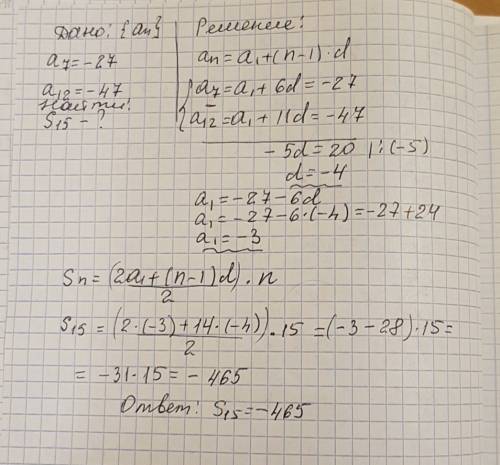 Дано: {an}
a₇ = -27
a₁₂ = -47
Найти:
S₁₅ - ?
Решение:
an = a₁ + (n-1)·d
{a₇ = a₁ + 6d = -27
a₁₂ = a₁ + 11d = -47
-5d = 20 |:(-5)
d = -4
a₁ = -27 - 6d
a₁ = -27 - 6·(-4) = -27 + 24
a₁ = -3
Sn = (2a₁ + (n-1)d)/2 · n
S₁₅ = (2·(-3) + 14·(-4))/2 · 15 = (-3 - 28)·15 =
= -31·15 = -465
Ответ: S₁₅ = -465